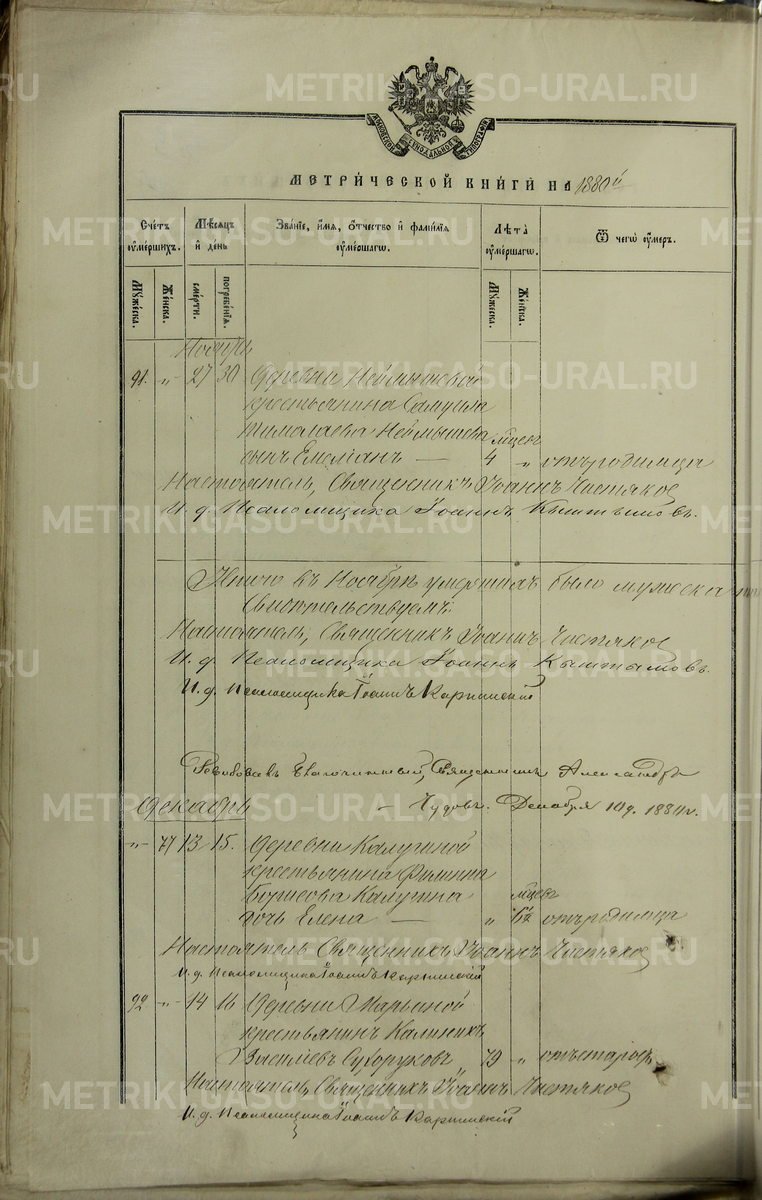 METRIKI.GASO-URAL.RU
МОСКОВСКОЙ СѴНОДАЛЬНОЙ ТИПОГРАФІИ
МЕТРИ́ЧЕСКОЙ КНИ́ГИ НА 1880й
Счетъ ѹмершихъ.
Мѣсяцъ и день
Званіе, имя, отчество и фамилія ѹмершагѡ.
Лѣта ѹмершагѡ.
Ѿ чегѡ ѹмеръ.
Мужеска.
Женска.
смерти.
погребенія.
Мужеска.
Женска.
Ноябрь
91. " 27 30 Деревни Неймышевой
крестьянина Самуила
Неймышева мцевъ
сынъ Емеліанъ — 4 " отъ родимца
Настоятель, Священникъ Іоаннъ Чистяковъ
И. д. Псаломщика Іоаннъ Кыштымовъ.
Итого въ Ноябрѣ умершихъ было мужеска
Свидѣтельствуемъ:
Настоятель, Священникъ Іоаннъ Чистяковъ
И. д. Псаломщика Іоаннъ Кыштымовъ.
И. д. Псаломщика Іоаннъ Карпинскій
Благочинный, Священникъ Александръ
Декабрь
— Чудовъ. Декабря 10 д. 1880 г.
" 77 13 15. Деревни Калугиной
крестьянина Филиппа
Борисова Калугина мцевъ
дочь Елена — " отъ родимца
Настоятель Священникъ Іоаннъ Чистяковъ
И. д. Псаломщика Іоаннъ Карпинскій
92 " 14 16 Деревни Марьиной
крестьянинъ Калиникъ
Василіевъ Сухоруковъ 79 " отъ старос.
Настоятель, Священникъ Іоаннъ Чистяковъ
И. д. Псаломщика Іоаннъ Карпинскій